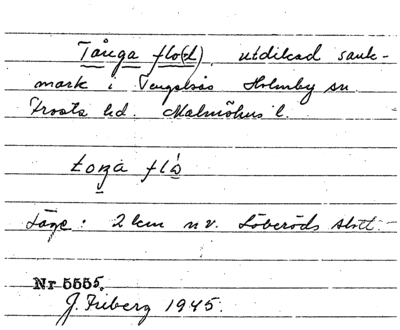 Tånga flo(d), utdikad sank-
mark i Tengelsås Holmby sn
Frosta hd. Malmöhus l.
tɔŋa flɔ́
Läge: 2 km n v. Löberöds slott.
Nr 5555.
J. Friberg 1945.